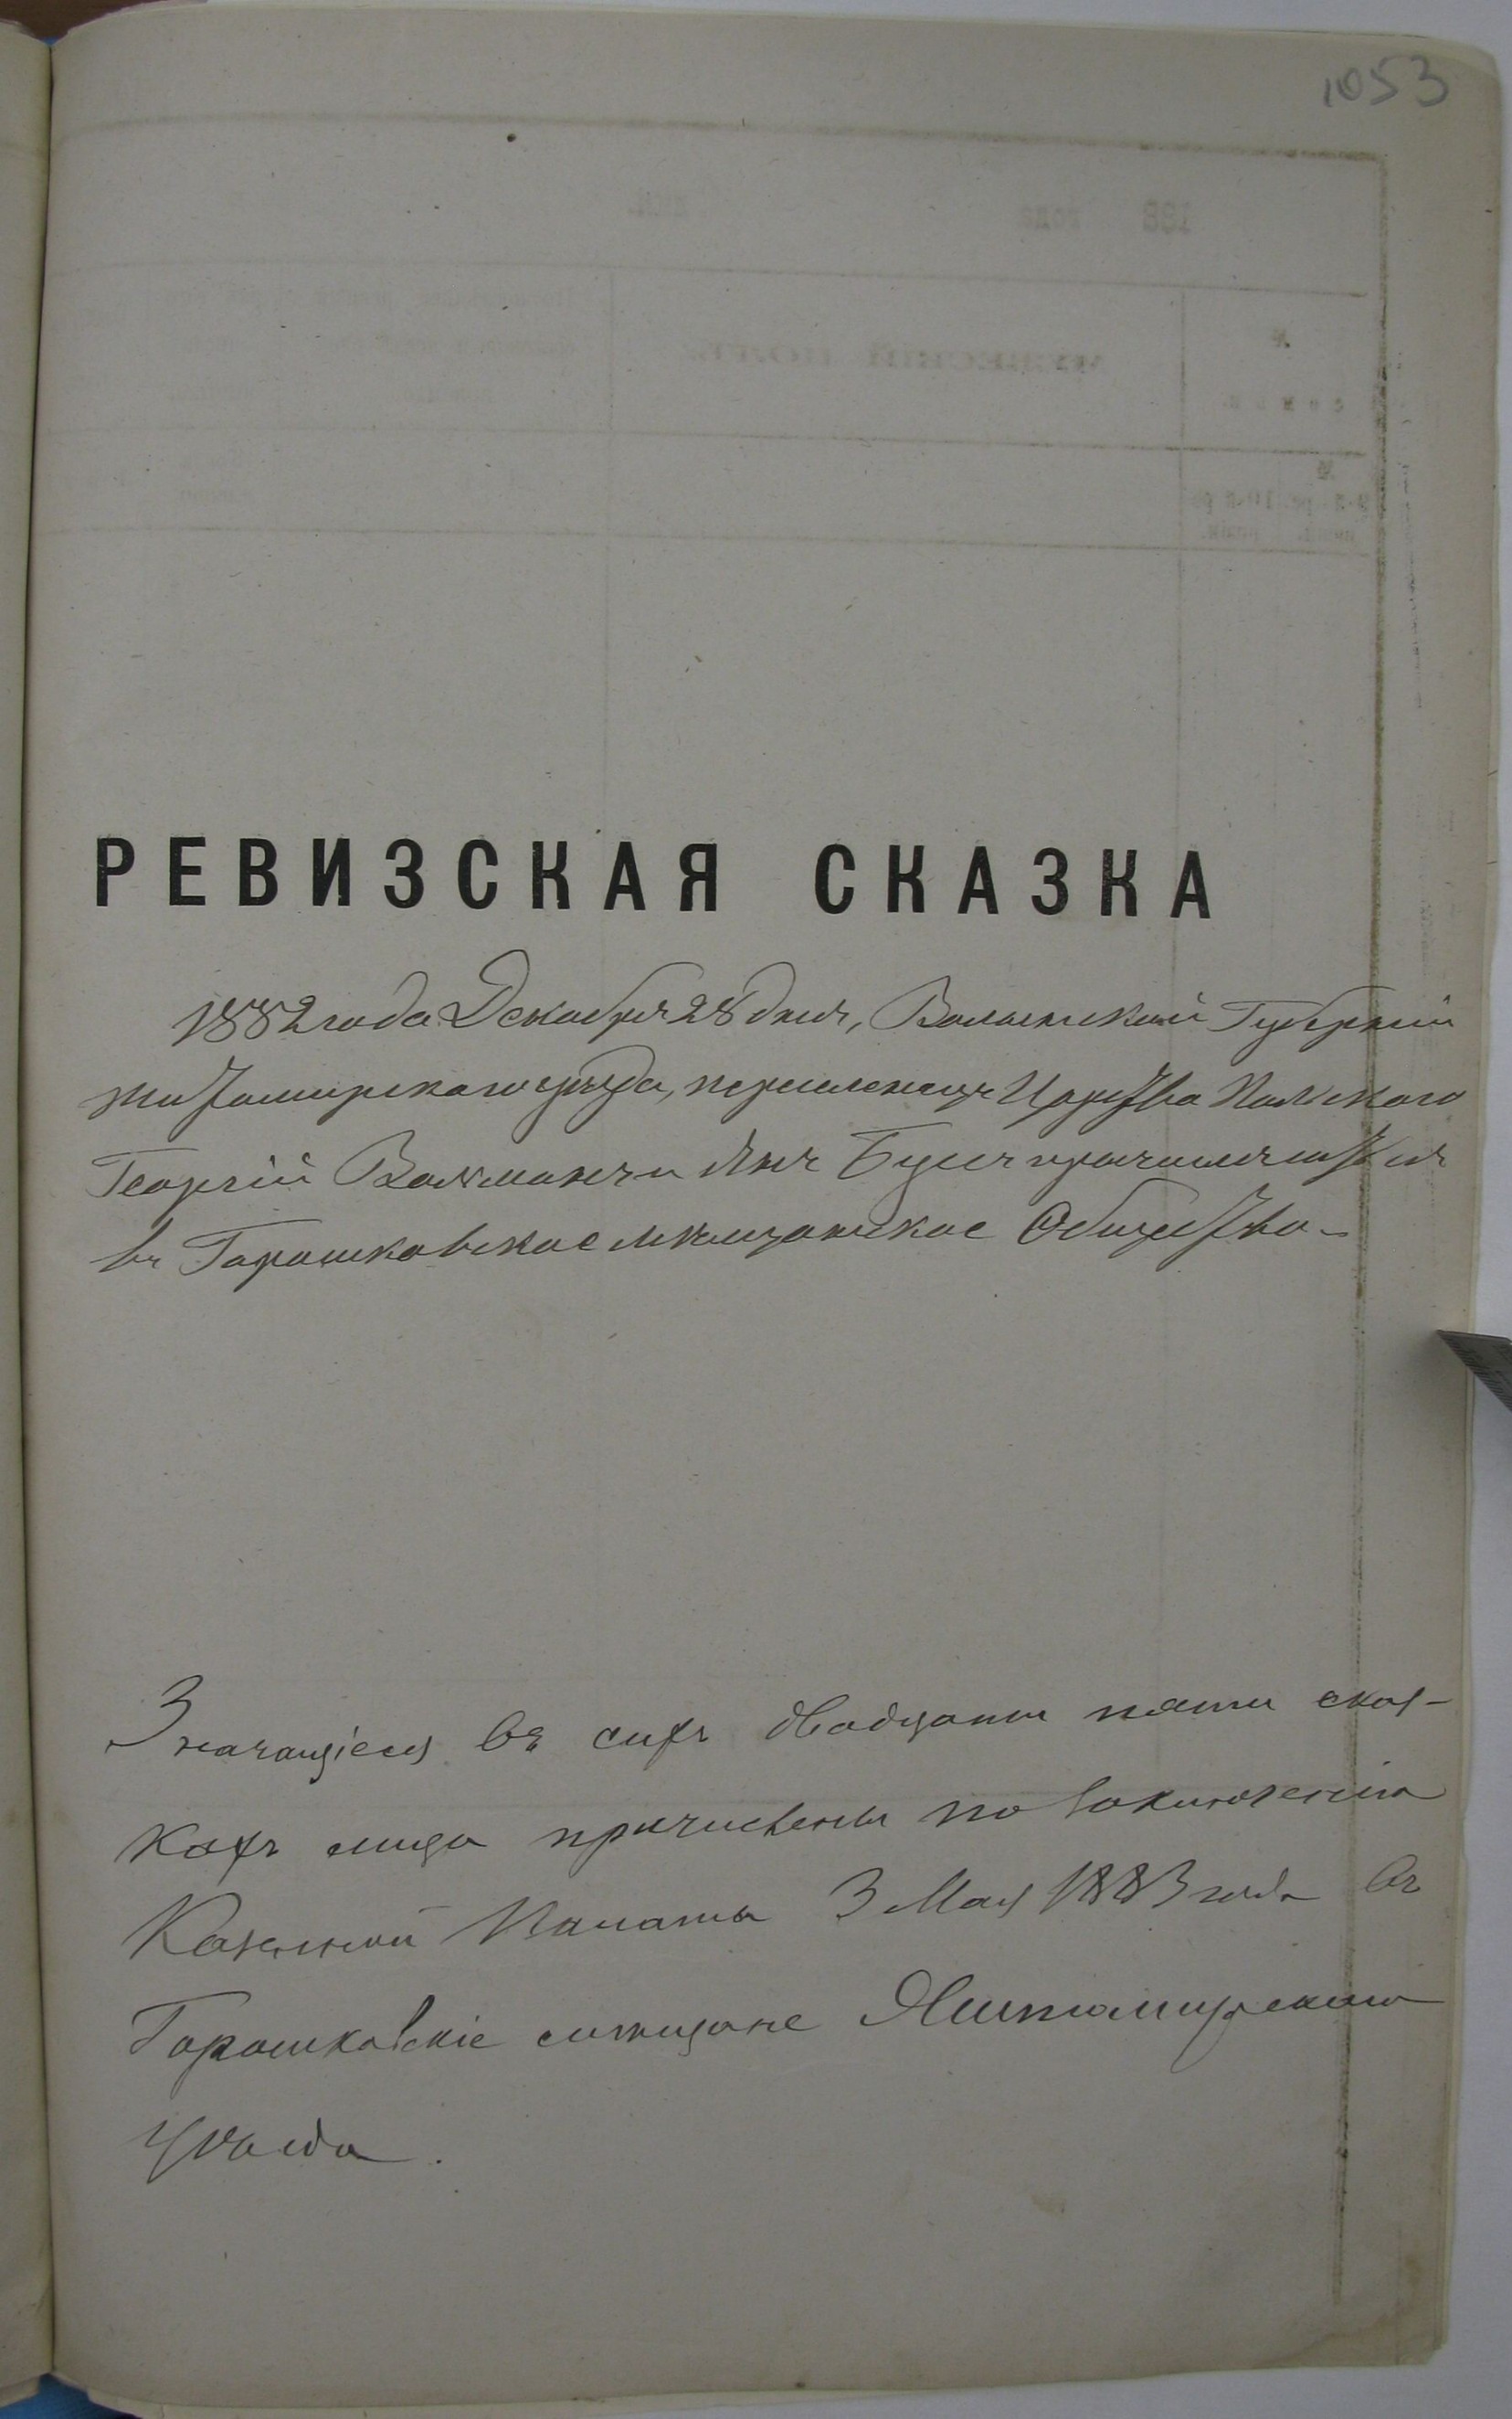 1053
РЕВИЗСКАЯ СКАЗКА
1882 года Декабря 28 дня, Волынской Губерніи
Житомирскаго уѣзда, переселенцы Царства Польскаго
Георгій Вольманъ и Янъ Буш причисляются
въ Горошковское мѣщанское Общество
Значащіеся въ сихъ двадцати пяти сказ-
кахъ лица причислены по заключенію
Казенной Палаты 3 Мая 1883 года въ
Горошковскіе мѣщане Житомирскаго
уѣзда.